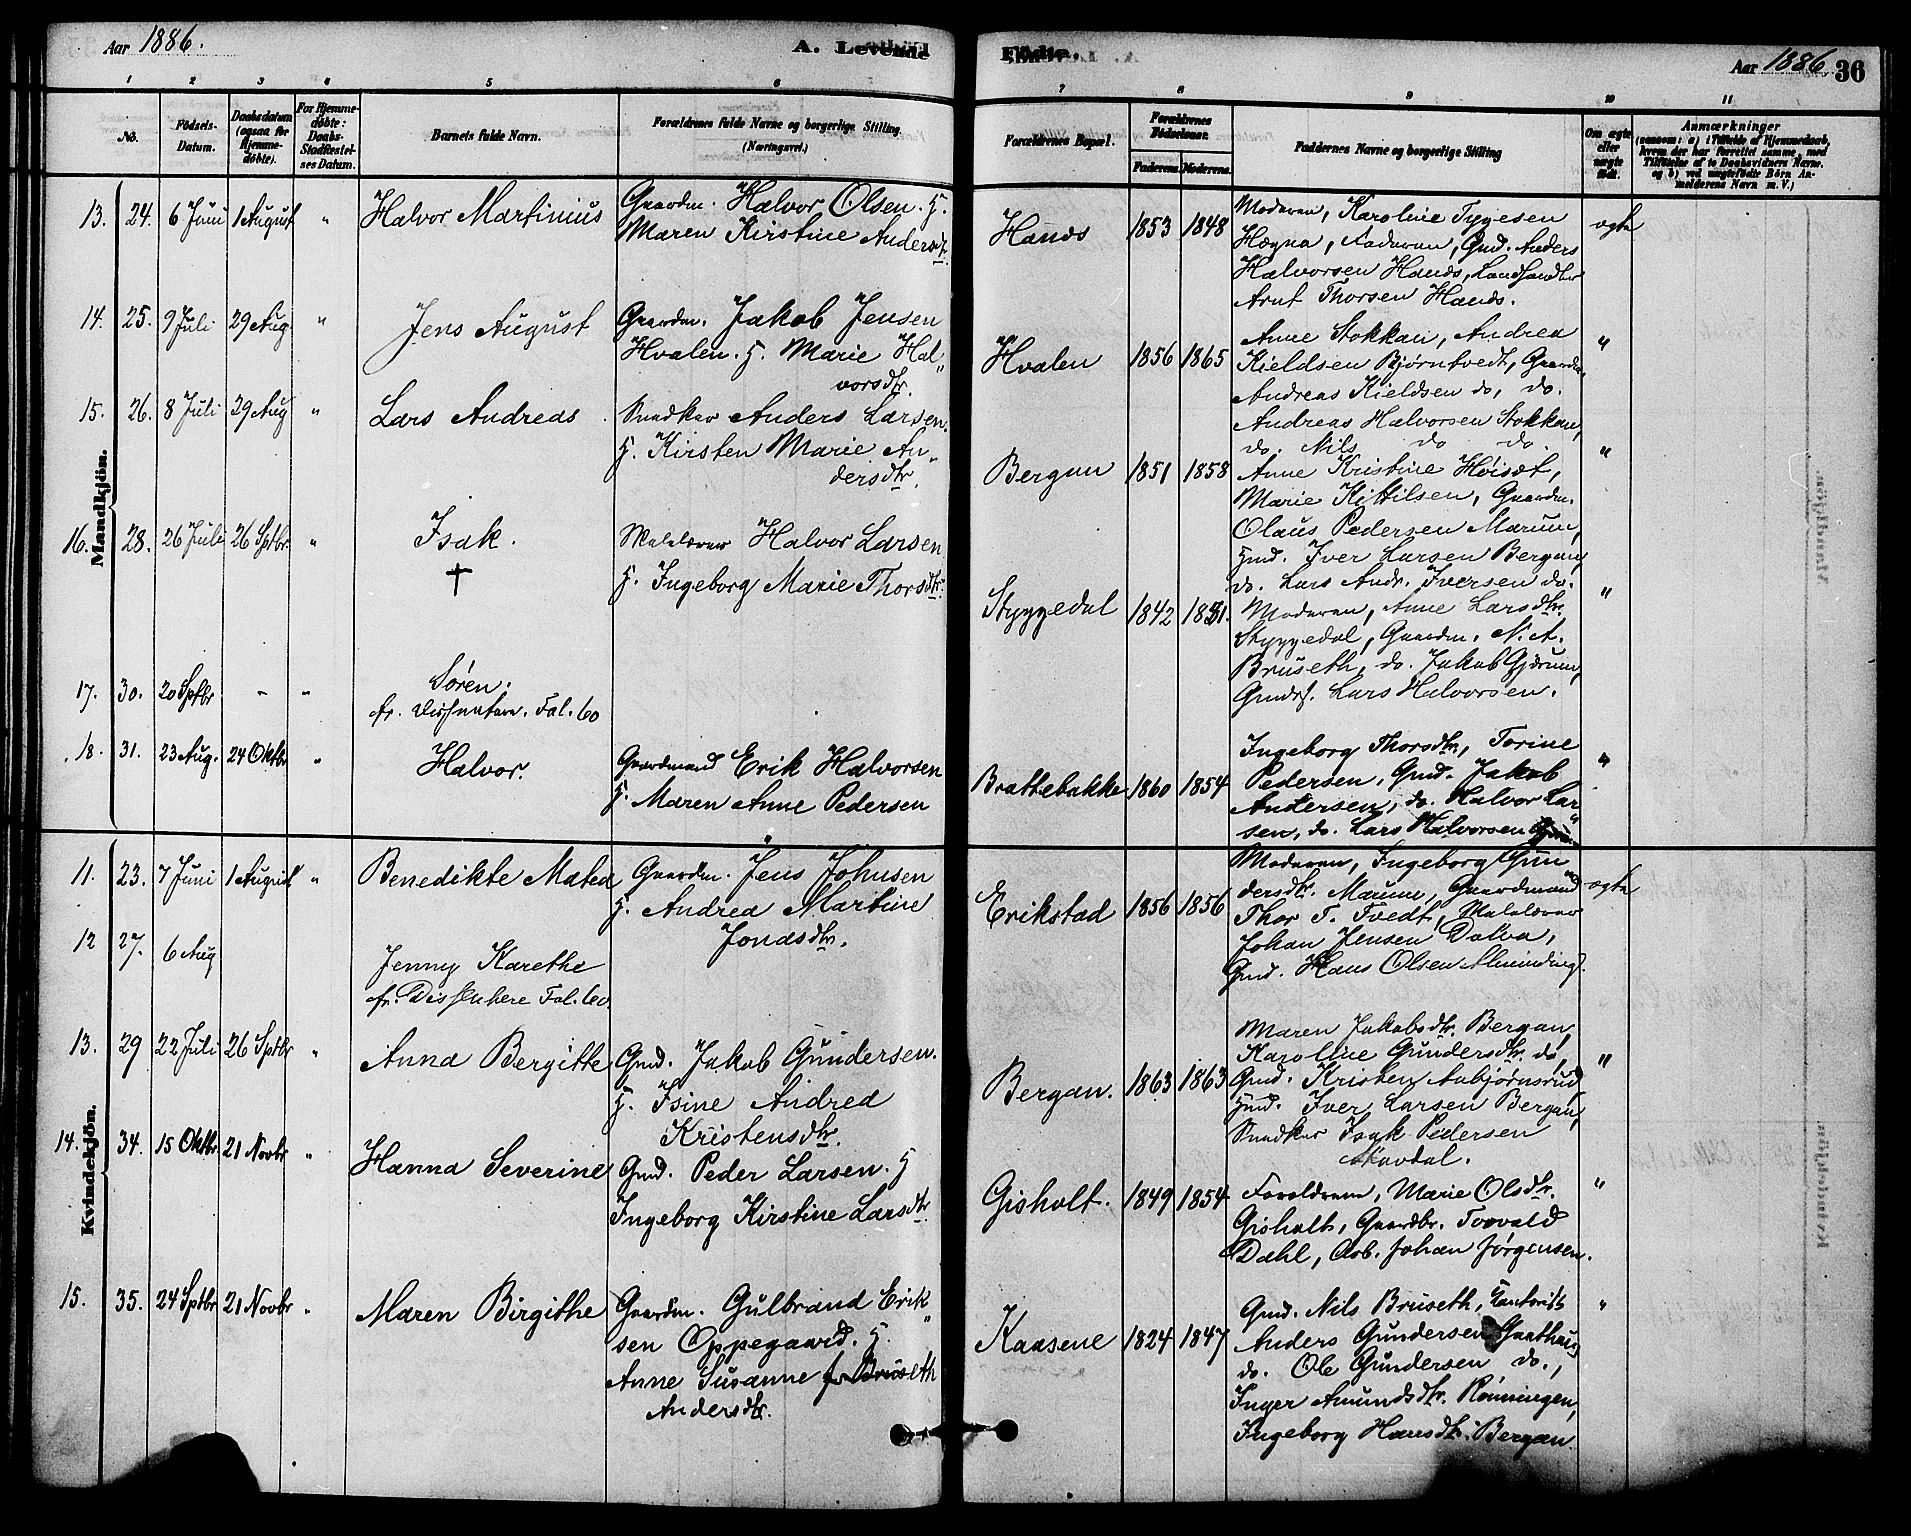 Aar 1886.
A. Levende
Fødte.
Aar 1886.
36
1 2 3 4 5 6 7 8 9 10 11
No.
Fødsels-
Datum.
Daabsdatum
(ogsaa for
Hjemme-
døbte).
For Hjemme-
døbte:
Daabs-
Stadfæstel-
ses Datum.
Barnets fulde Navn.
Forældrenes fulde Navne og borgerlige Stilling
(Næringsvei.)
Forældrenes Bopæl.
Forældrenes
Fødselsaar.
Faderens. Moderens.
Faddernes Navne og borgerlige Stilling
Om ægte
eller
uægte
født.
Anmærkninger
(saasom: a) i Tilfælde af Hjemmedaab,
hvem der har forrettet samme, med
Tilføielse af to Daabsvidners Navne.
og b) ved uægtefødte Børn An-
melderens Navn m. V.)
Mandkjön.
13. 24. 6 Juni 1 August " Halvor Martinius
Gaardm. Halvor Olsen. H.
Maren Kirstine Andersdtr.
Haugs 1853 1848
Moderen, Karoline Tygesen
Hægna, Faderen, Gmd. Anders
Halvorsen, Landhandler
Arnt Thorsen
ægte
14. 25. 9 Juli 29 Aug. " Jens August
Gaardm. Jakob Jensen
Hvalen. H. Marie Hal"
vorsdtr.
Hvalen 1856 1865
Anne Stokkan, Andrea
Kieldsen Bjørntvedt, Gaardm.
Andreas Kieldsen do, do.
Andreas Halvorsen Stokkan,
do. Nils do do.
"
15. 26. 8 Juli 29 Aug " Lars Andreas
Snedker Anders Larsen.
H. Kirsten Marie An"
dersdtr.
Bergan 1851 1858
Anne Kristine Høisæt,
Marie Kittilsen, Gaardm.
Olaus Pedersen Marum,
Hmd. Iver Larsen Bergan,
do. Lars Andr. Iversen do.
"
16. 28. 26 Juli 26 Sptbr. " Isak.
†
Halvor Larsen
H. Ingeborg Marie Thorsdtr.
Styggedal 1842 1851.
Moderen, Anne Larsdtr.
Styggedal, Gaardm. N. A.
Bruseth, do. Jakob Gjærum,
Lars Halvorsen.
"
17. 30. 20 Sptbr - " Søren.
fr. Dissentere. Fol. 60
18. 31. 23 Aug. 24 Oktbr " Halvor.
Gaardmand Erik Halvorsen
H. Maren Anne Pedersen
Brattebakke 1860 1854
Ingeborg Thorsdtr, Torine
Pedersen, Gmd. Jakob
Andersen, do. Halvor Lar"
sen, do. Lars Halvorsen
"
Kvindekjön.
11. 23. 7 Juni 1 August " Benedikte Matea
Gaardm. Jens Johnsen
H. Andrea Martine
Jonasdtr.
Erikstad 1856 1856
Moderen, Ingeborg Gun"
dersdtr. Marum, Gaardmand
Thor T. Tvedt,
Johan Jensen Dalva,
Gmd. Hans Olsen
ægte
12 27. 6 Aug
Jenny Karethe
fr. Dissentere Fol. 60.
13. 29 22 Juli 26 Sptbr " Anna Bergitte
Gmd. Jakob Gundersen.
H. Isine Andrea
Kristensdtr.
Bergan. 1863 1863
Maren Jakobsdtr. Bergan,
Karoline Gundersdtr. do,
Gmd. Kristen Aabjørnsrud,
Hmd. Iver Larsen Bergan,
Snedker Isak Pedersen
"
14. 34. 15 Oktbr 21 Novbr " Hanna Severine
Gmd. Peder Larsen. H
Ingeborg Kirstine Larsdtr
Gisholt. 1849 1854
Forældrene, Marie Olsdtr.
Gisholt, Gaardbr. Torvald
Dahl, Arb. Johan Jørgensen.
"
15. 35. 24 Sptbr 21 Novbr " Maren Birgithe
Gaardm. Gulbrand Erik"
sen Oppegaard. H.
Anne Susanne f. Bruseth
Andersdtr.
Kaasene 1824 1847
Gmd. Nils Bruseth,
Anders Gundersen
do. Ole Gundersen do.,
Inger Amundsdtr. Rønningen,
Ingeborg Hansdtr. Bergan
"